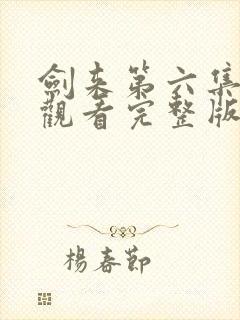 劍来第六集
觀看完整版
楊春節